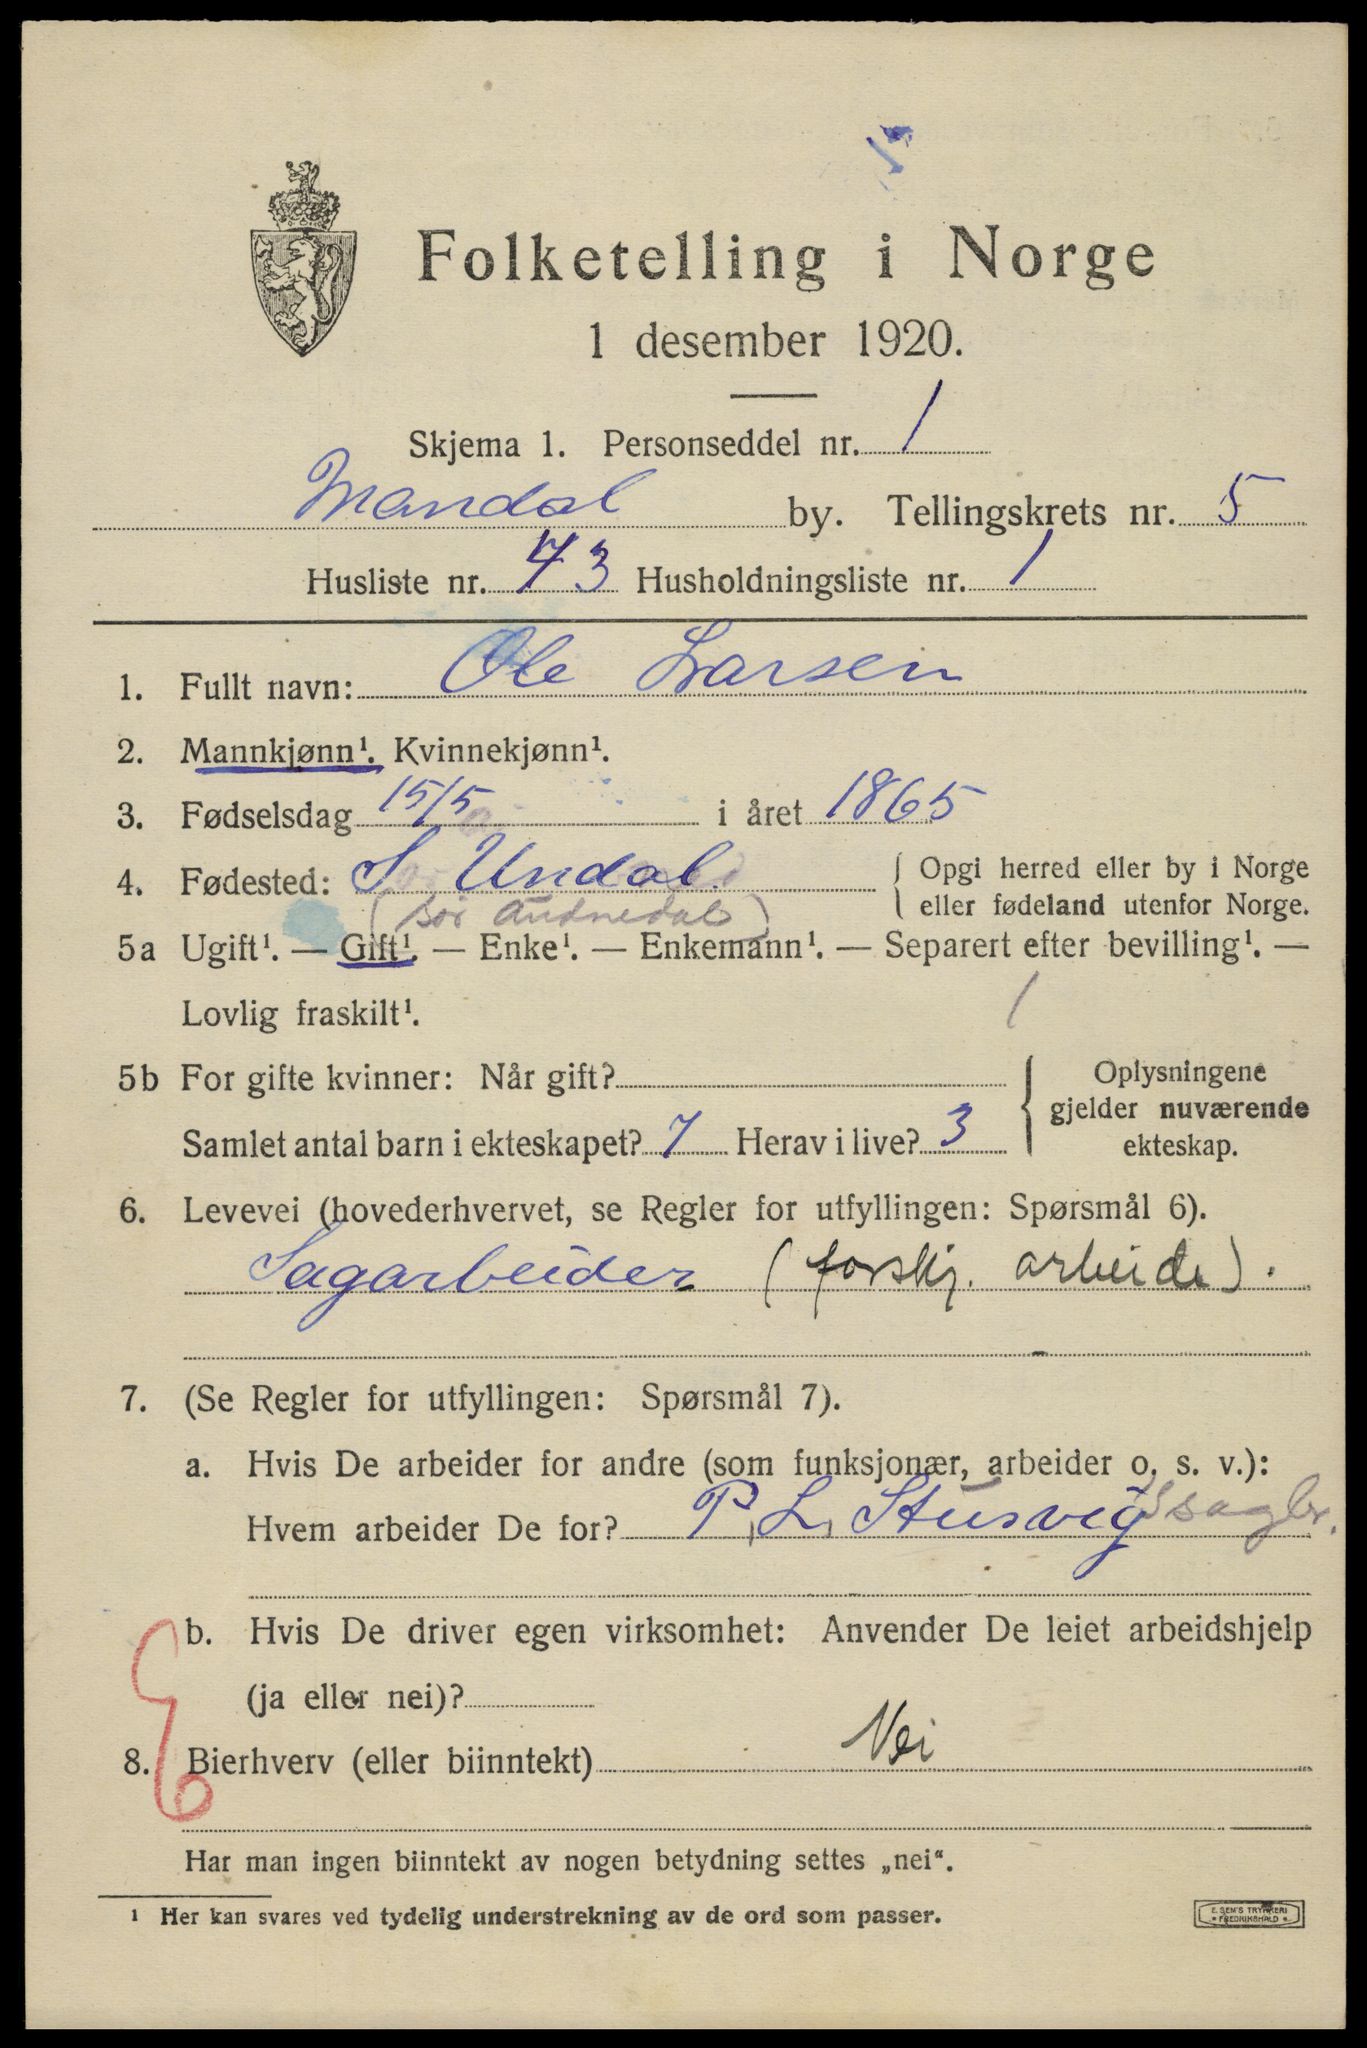 Folketelling i Norge
1 desember 1920.
Skjema 1. Personseddel nr. 1
Mandal by. Tellingskrets nr. 5
Husliste nr. 73 Husholdningsliste nr. 1
1. Fullt navn: Ole Larsen
2. Mannkjønn¹. Kvinnekjønn¹.
3. Fødselsdag 15/5 i året 1865
4. Fødested: S. Undal. { Opgi herred eller by i Norge
eller fødeland utenfor Norge.
(Sør Audnedal)
5a Ugift¹. — Gift¹. — Enke¹. — Enkemann¹. — Separert efter bevilling¹. —
Lovlig fraskilt¹. /
5b For gifte kvinner: Når gift?
Samlet antal barn i ekteskapet? 7 Herav i live? 3
{ Oplysningene
gjelder nuværende
ekteskap.
6. Levevei (hovederhvervet, se Regler for utfyllingen: Spørsmål 6).
Sagarbeider (forskj. arbeide).
7. (Se Regler for utfyllingen: Spørsmål 7).
a. Hvis De arbeider for andre (som funksjonær, arbeider o. s. v.):
Hvem arbeider De for? P. L. Stusvig's sagbr.
b. Hvis De driver egen virksomhet: Anvender De leiet arbeidshjelp
(ja eller nei)?
8. Bierhverv (eller biinntekt) Nei
Har man ingen biinntekt av nogen betydning settes „nei“.
¹ Her kan svares ved tydelig understrekning av de ord som passer.
E. SEM'S TRYKKERI
* FREDRIKSHALD *